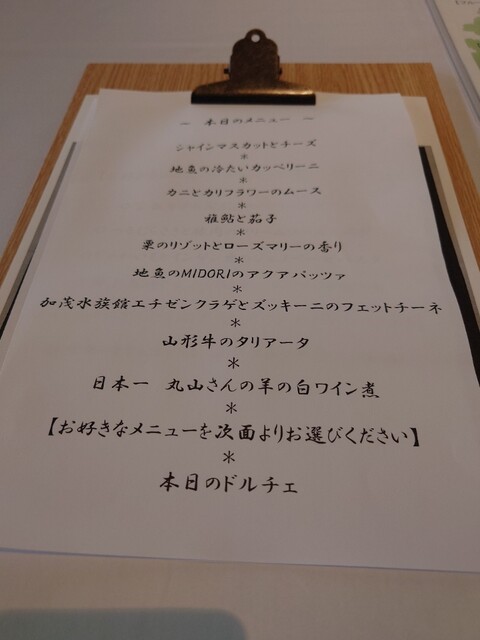 ～ 本日のメニュー ～
シャインマスカットとチーズ
＊
地魚の冷たいカッペリーニ
＊
カニとカリフラワーのムース
＊
稚鮎と茄子
＊
栗のリゾットとローズマリーの香り
＊
地魚のMIDORIのアクアパッツァ
＊
加茂水族館エチゼンクラゲとズッキーニのフェットチーネ
＊
山形牛のタリアータ
＊
日本一 丸山さんの羊の白ワイン煮
＊
【お好きなメニューを次面よりお選びください】
＊
本日のドルチェ